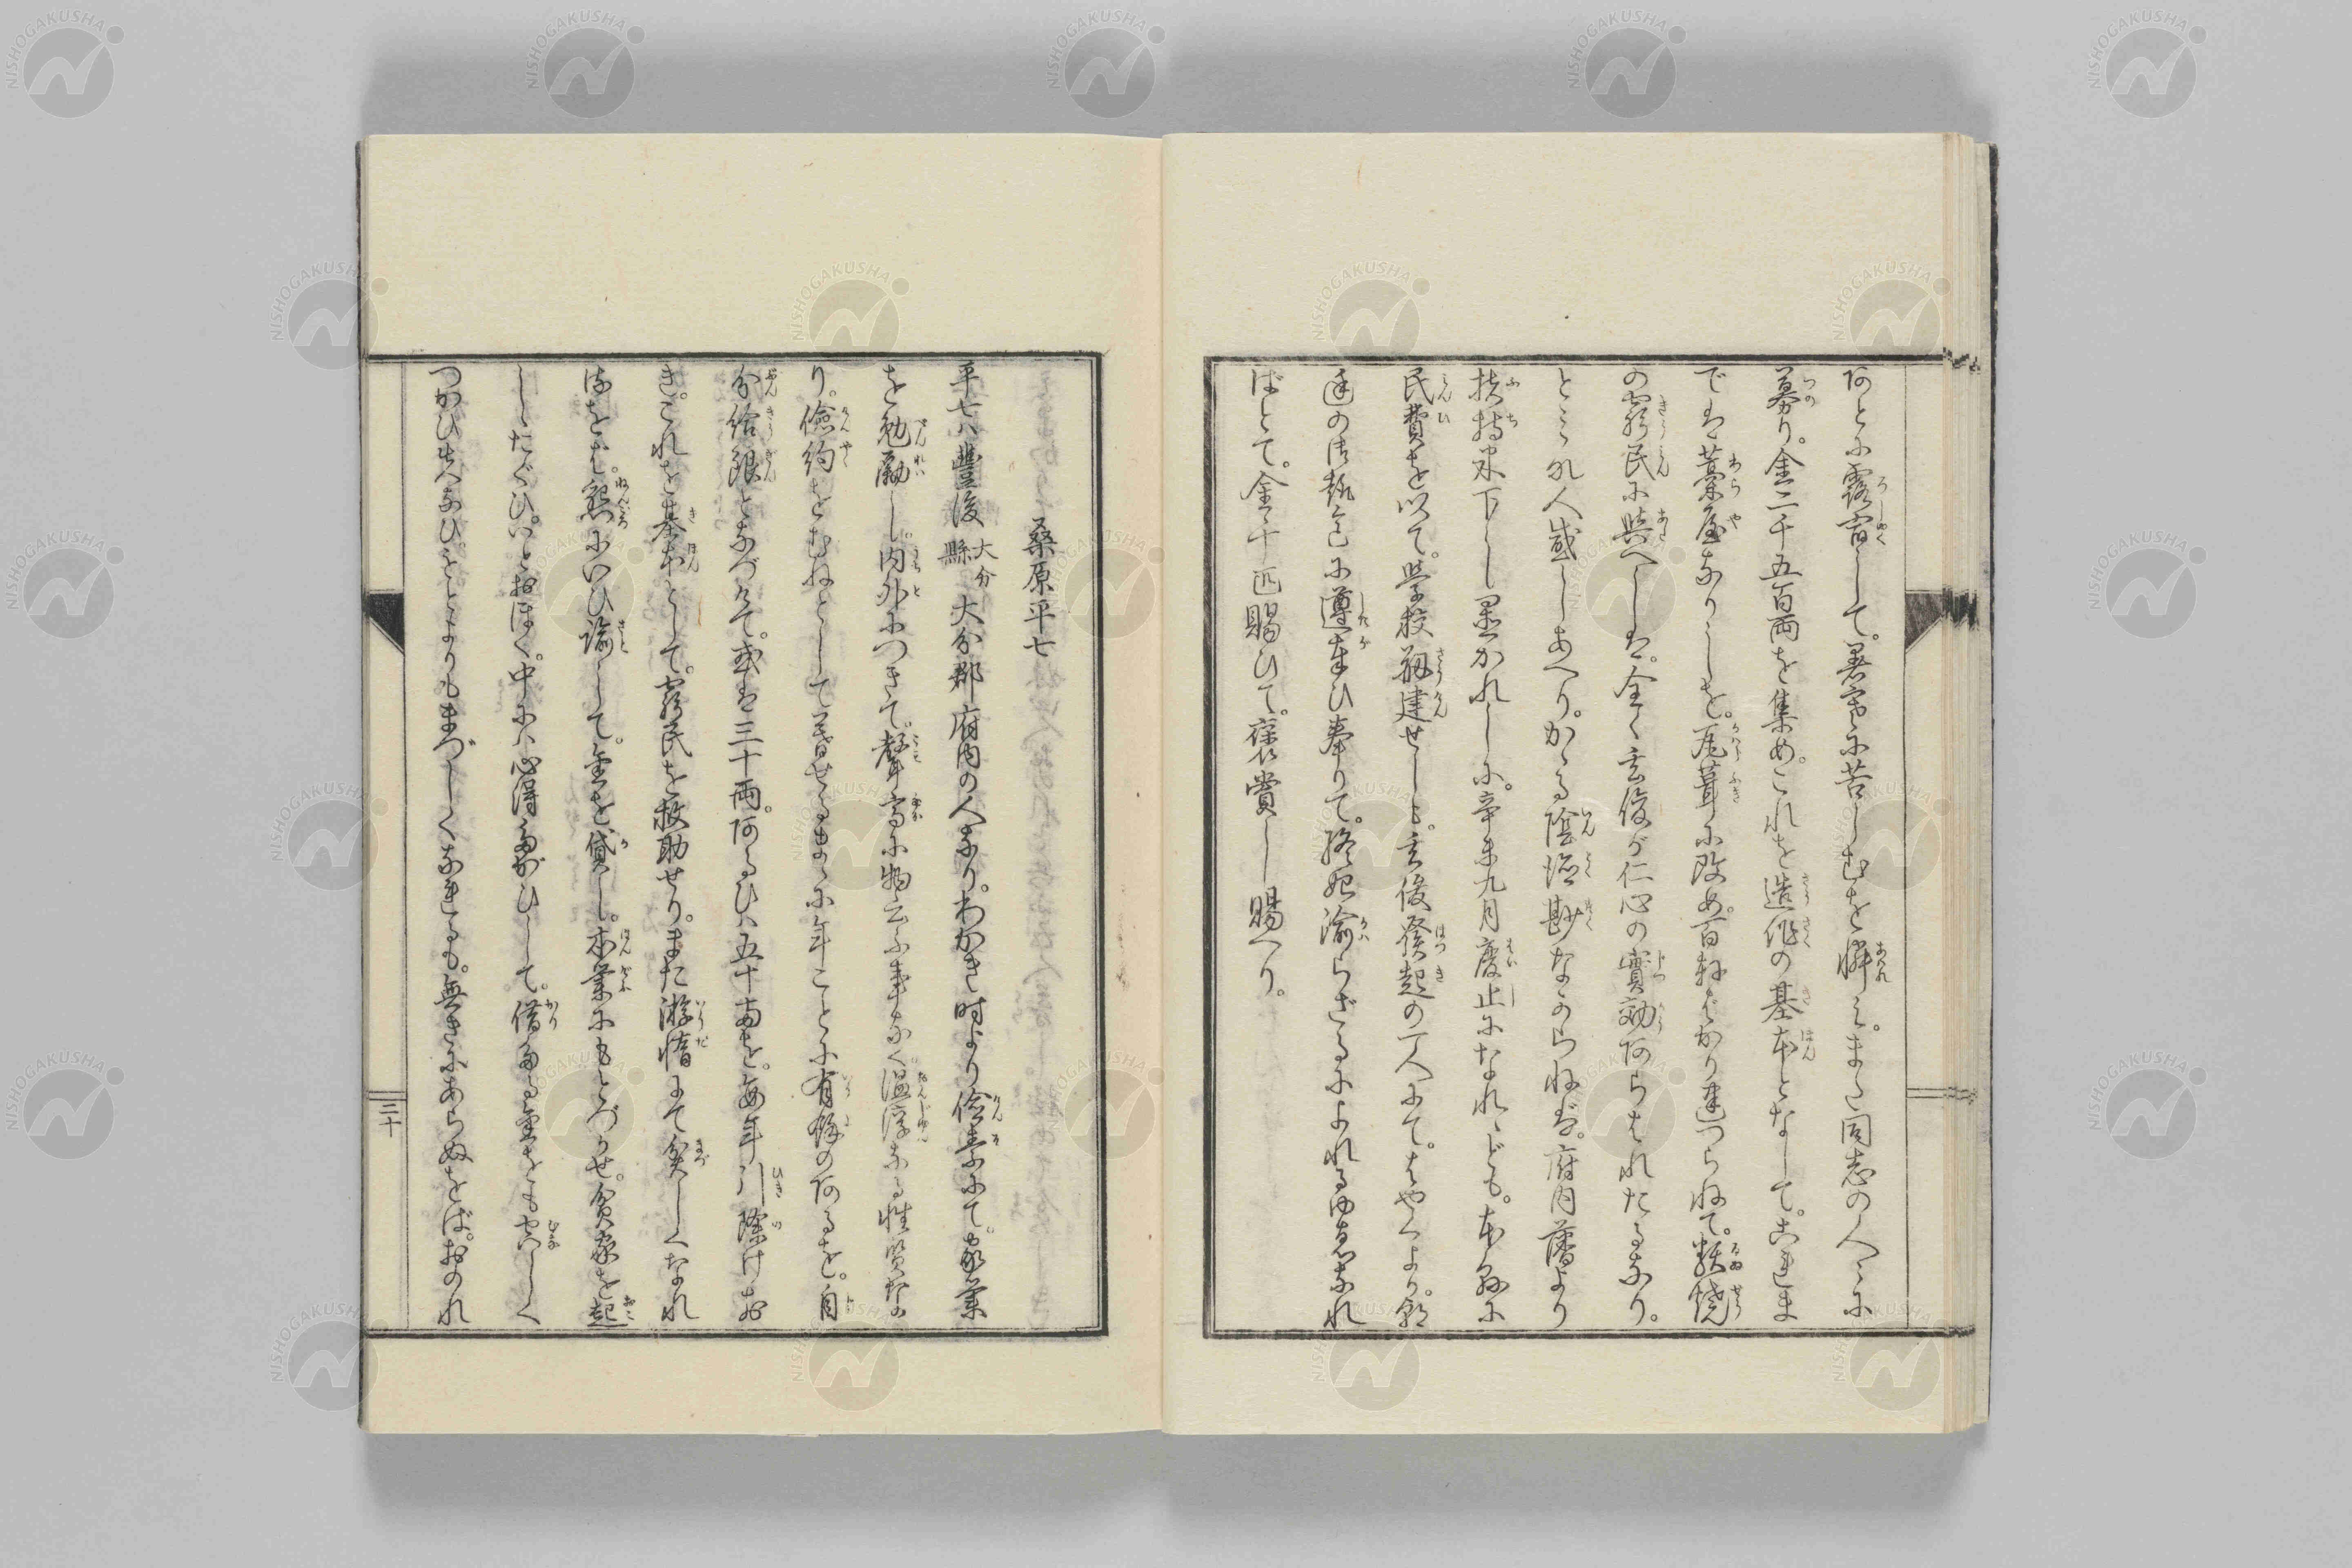 阿とに露宿して。暑寒に苦しむを憐ミ。また同志の人々に
募り。金二千五百両を集め。これを造作の基本となして。これま
でハ藁屋なりしを。瓦葺に改め。百軒ばかり建つらねて。類焼
の窮民に与へしハ。全く玄俊が仁心の實効阿らはれたるなり。
とミな人感しあへり。かゝる陰徳尠なからねバ。府内藩より
扶持米下し置かれしに。辛未九月廃止になれゝども。本縣に
民費を以て。学校剏建せしも。玄俊発起の一人にて。はやくより。朝
廷の御趣意に遵ひ奉りて。終始渝らざるによれるゆゑなれ
ばとて。金千匹賜ひて。褒賞し賜へり。
桑原平七
平七ハ豊後大分縣大分郡府内の人なり。わかき時より儉素にて。家業
を勉励し。内外につきて。聲高に物云ふ事なく温淳なる性質な
り。儉約をむねとして暮せるまゝに年ことに有餘の阿るを。自
分給銀となづけて。或ハ三十両。阿るひハ五十両を。毎年引除けお
き。これを基本として。窮民を救助せり。また游惰にて貧しくなれ
るをば。懇にいひ諭して。金を貸し。本業にもとづかせ。貧家を起
したぐひ。いとおほく。中にハ心得たがひして。借たる金をも空しく
つかひ失なひ。もとよりもまづしくなれるも。無きにあらぬをば。おのれ
三十